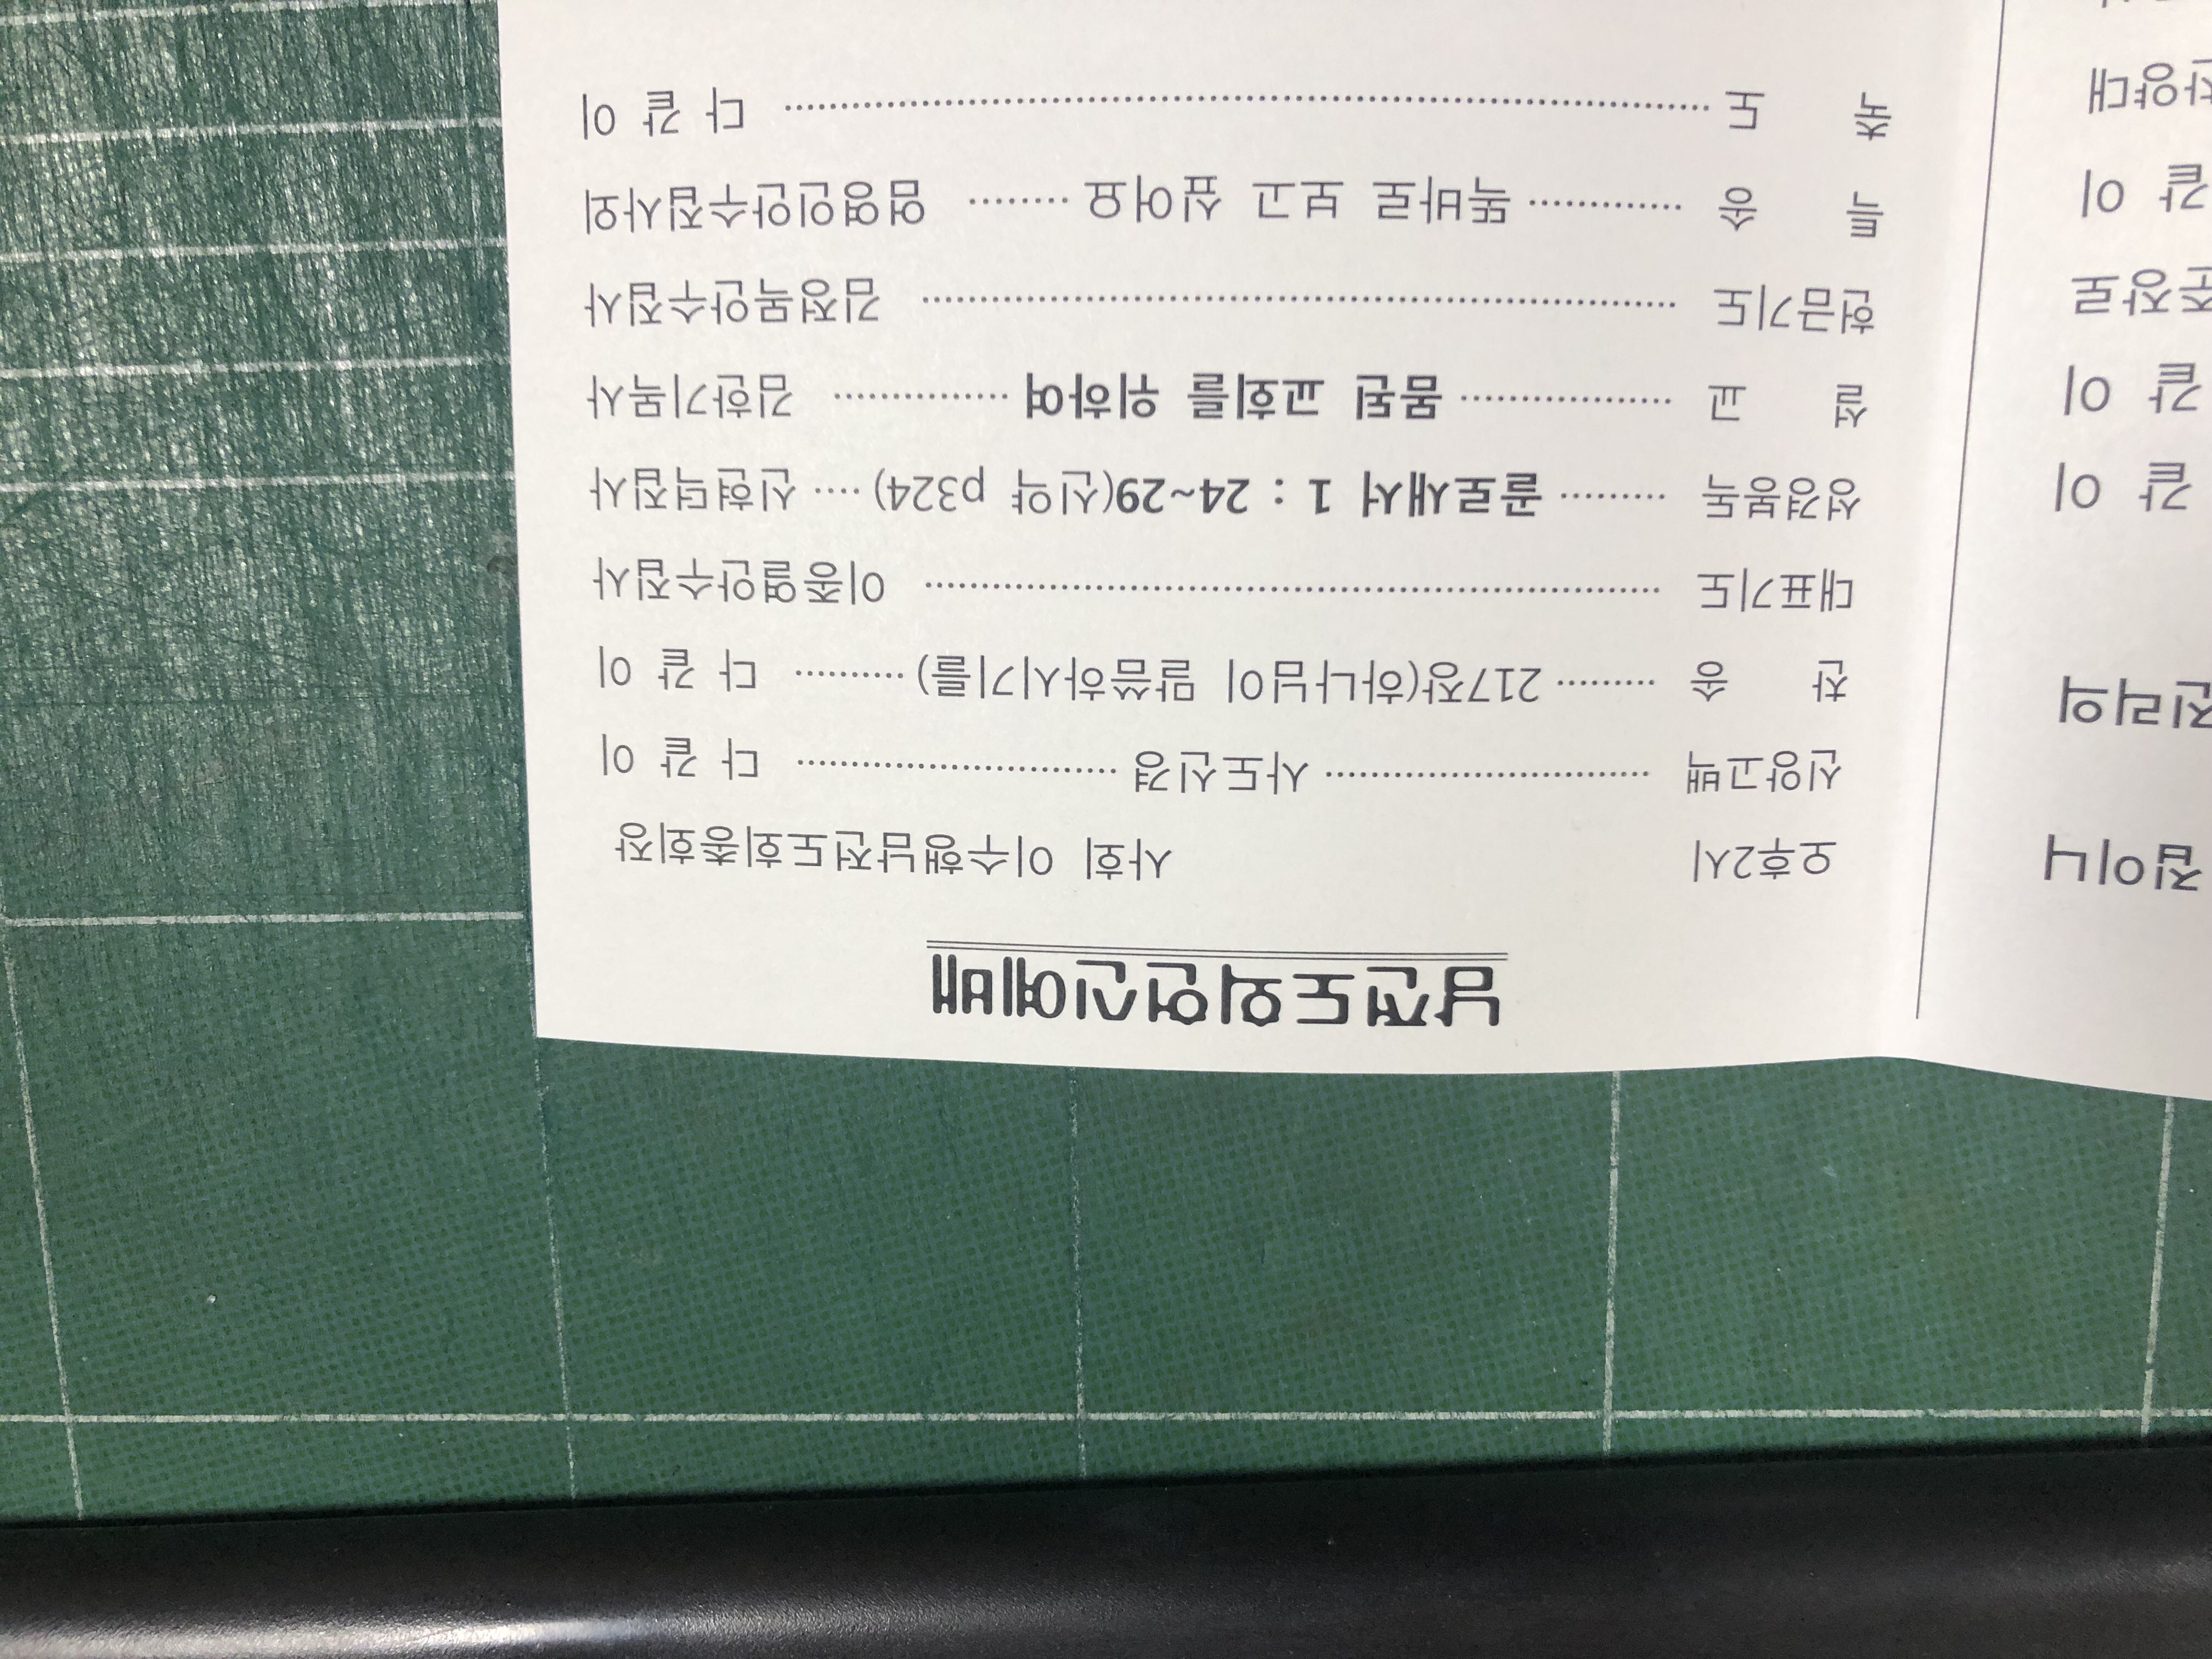 남전도회헌신예배
오후2시 사회 이수행남전도회총회장
신앙고백 ······ 사도신경 ······ 다 같 이
찬 송 ······ 217장(하나님이 말씀하시기를) ······ 다 같 이
대표기도 ······ 이종열안수집사
성경봉독 ······ 골로새서 1 : 24~29(신약 p324) ···· 신현덕집사
설 교 ······ 몸된 교회를 위하여 ······ 김한기목사
헌금기도 ······ 김정목안수집사
특 송 ······ 똑바로 보고 싶어요 ······ 엄영인안수집사외
축 도 ······ 다 같 이
집이니
진리의
같 이
같 이
준장로
같 이
찬양대